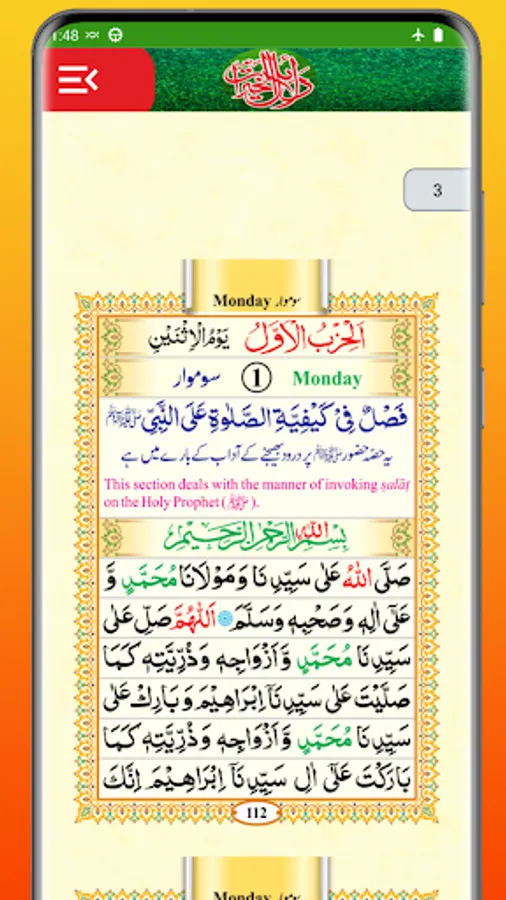 1:48
دلائل الخيرات
3
Monday سوموار
اَلْحِزْبُ الْاَوَّلُ يَوْمُ الْاِثْنَيْنِ
سوموار 1 Monday
فَصْلٌ فِیْ كَيْفِيَّةِ الصَّلٰوةِ عَلَی النَّبِیِّ ﷺ
یہ حصّہ حضور ﷺ پر درود بھیجنے کے آداب کے بارے میں ہے
This section deals with the manner of invoking ṣalāṭ
on the Holy Prophet (ﷺ).
بِسْمِ اللّٰهِ الرَّحْمٰنِ الرَّحِيْمِ
صَلَّی اللّٰهُ عَلٰی سَيِّدِنَا وَمَوْلَانَا مُحَمَّدٍ وَّ
عَلٰٓی اٰلِهٖ وَصَحْبِهٖ وَسَلَّمَ اَللّٰهُمَّ صَلِّ عَلٰی
سَيِّدِنَا مُحَمَّدٍ وَّاَزْوَاجِهٖ وَذُرِّيَّتِهٖ كَمَا
صَلَّيْتَ عَلٰی سَيِّدِنَآ اِبْرَاهِيْمَ وَبَارِكْ عَلٰی
سَيِّدِنَا مُحَمَّدٍ وَّاَزْوَاجِهٖ وَذُرِّيَّتِهٖ كَمَا
بَارَكْتَ عَلٰٓی اٰلِ سَيِّدِنَآ اِبْرَاهِيْمَ اِنَّكَ
112
Monday سوموار